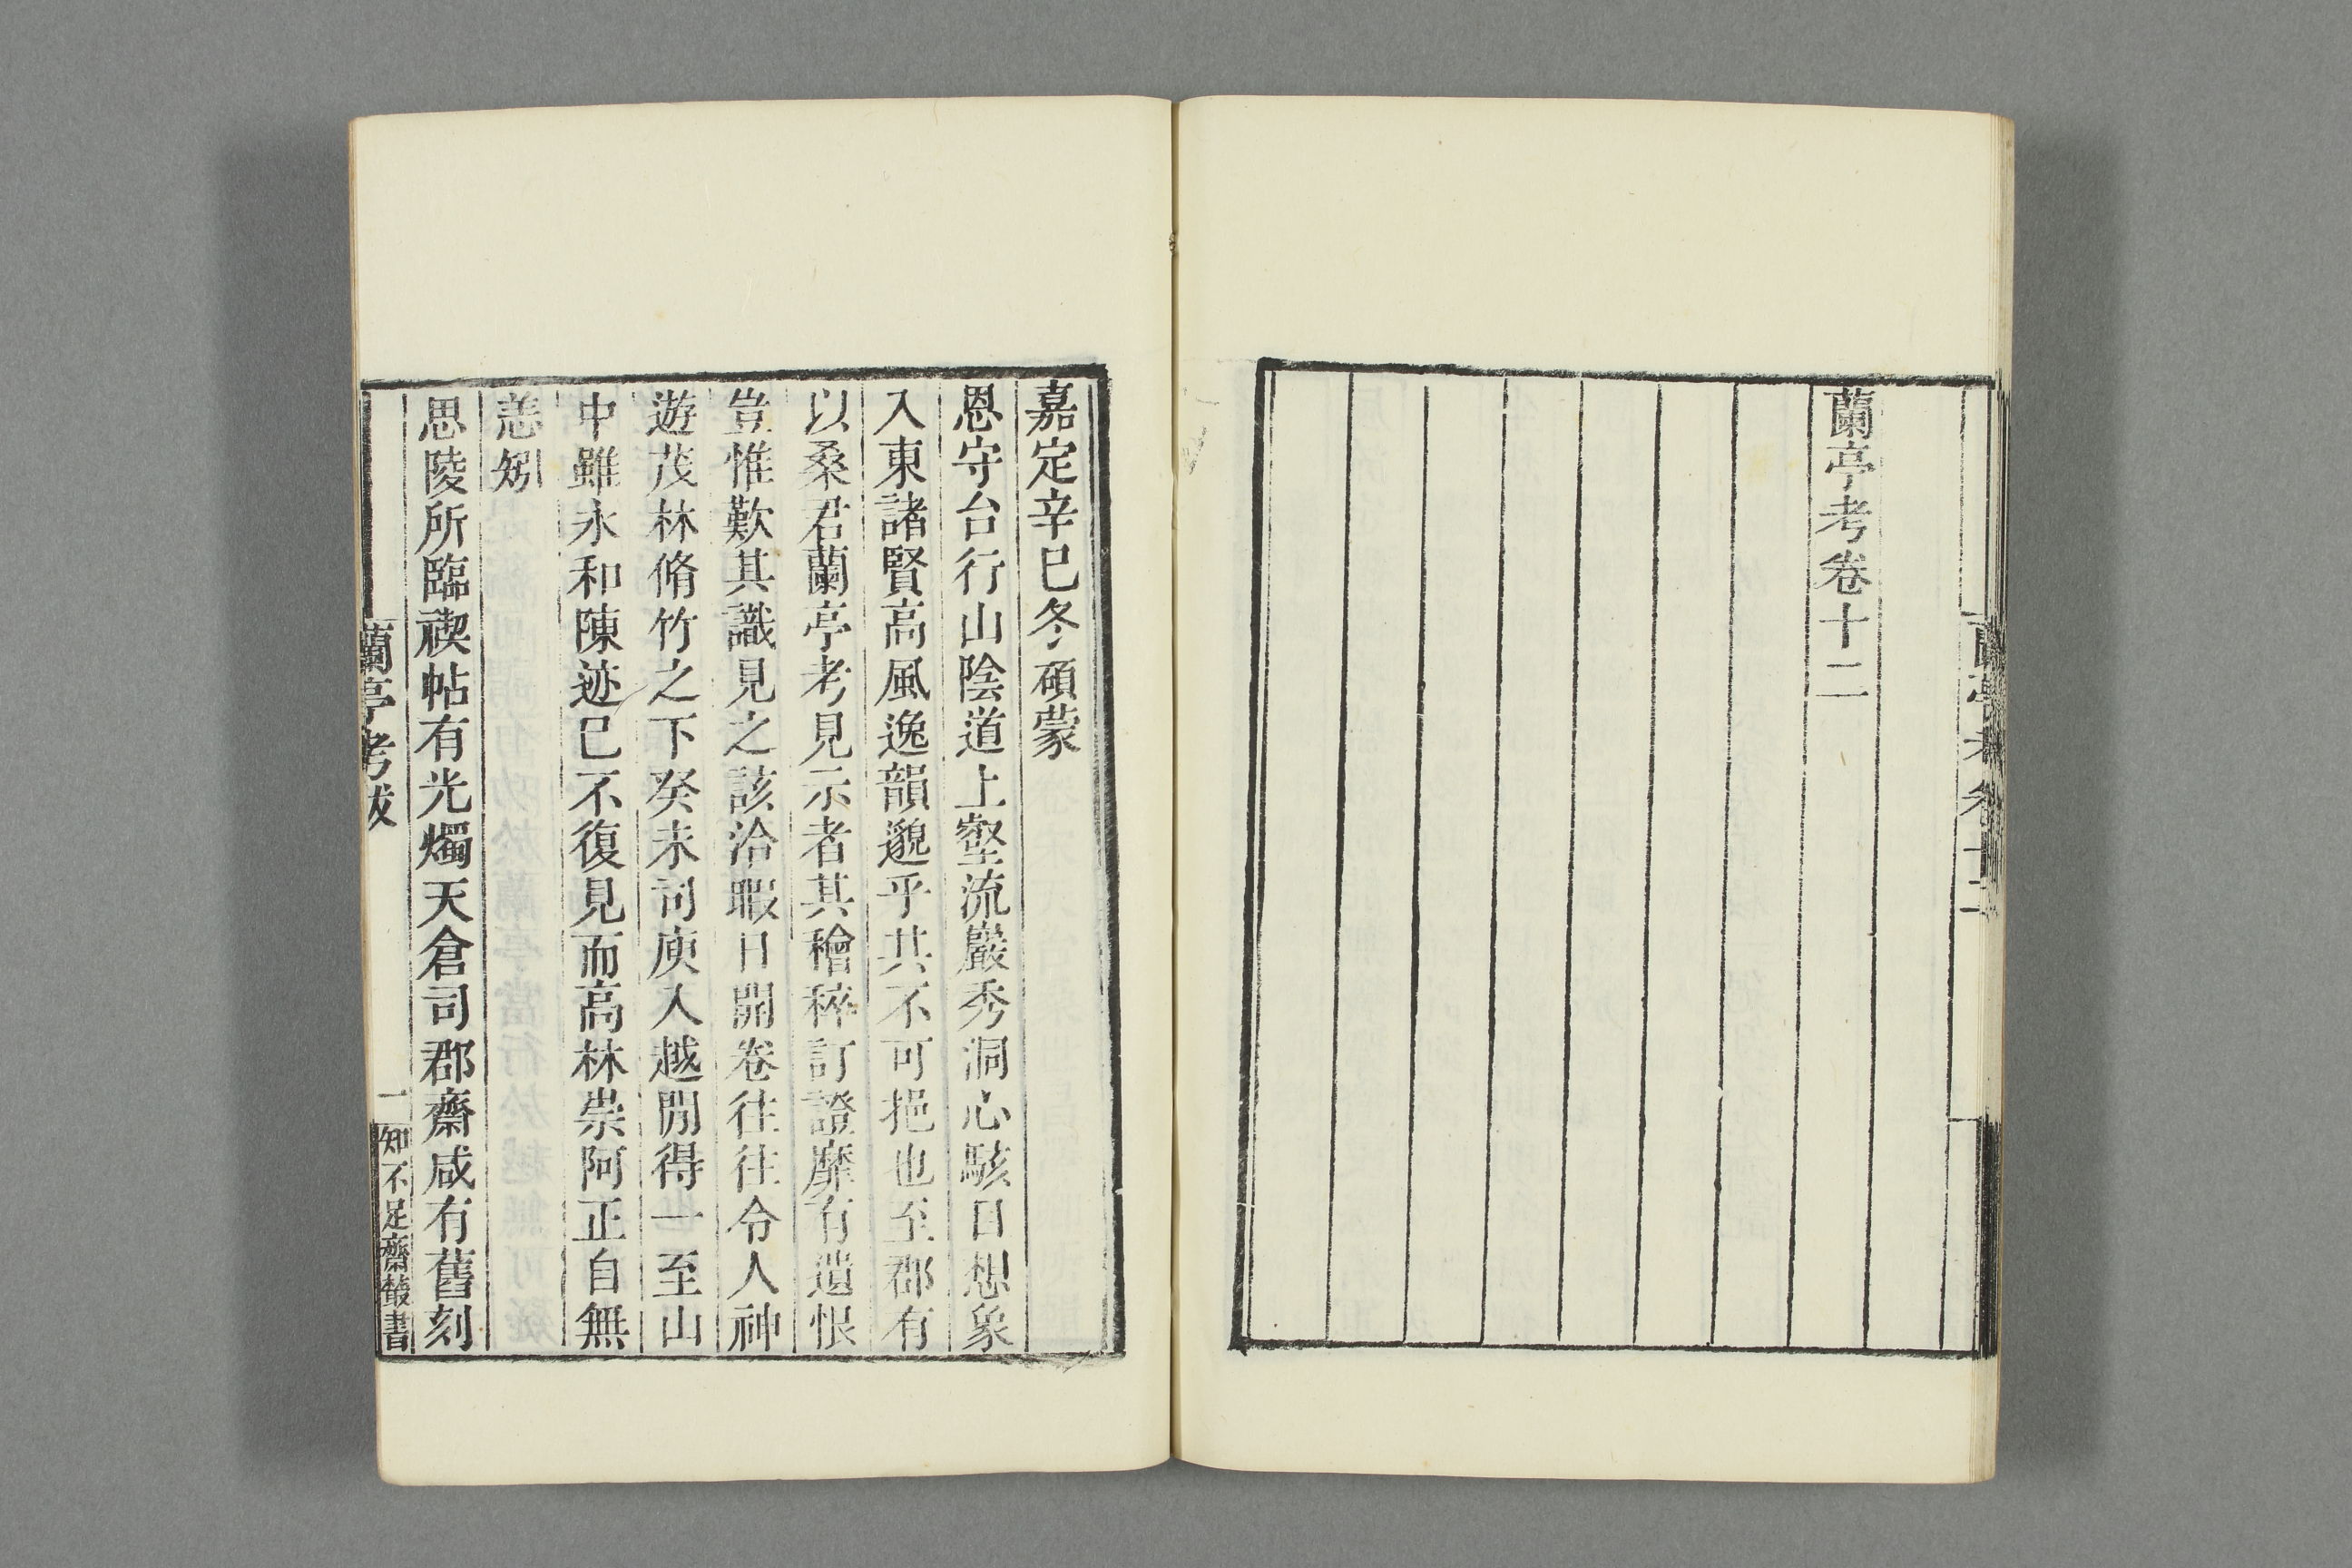 蘭亭考卷十二
蘭亭考卷十二
嘉定辛巳冬碩蒙
恩守台行山陰道上壑流巖秀洞心駭目想象
入東諸賢高風逸韻邈乎其不可挹也至郡有
以桑君蘭亭考見示者其穧稡訂證靡有遺恨
豈惟歎其識見之該洽暇日開卷往往令人神
遊茂林脩竹之下癸未司庾入越閒得一至山
中雖永和陳迹已不復見而高林崇阿正自無
恙矧
思陵所臨禊帖有光燭天倉司郡齋咸有舊刻
蘭亭考跋
一
知不足齋叢書